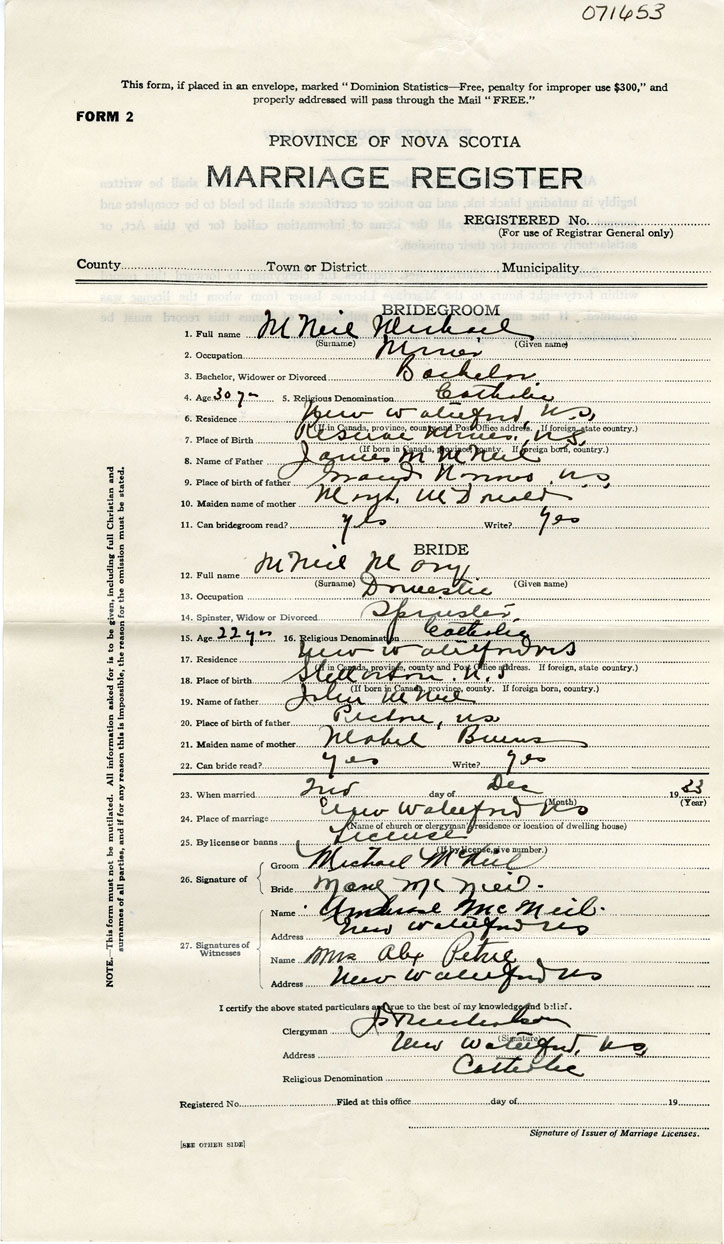 071653
This form, if placed in an envelope, marked "Dominion Statistics—Free, penalty for improper use $300," and
properly addressed will pass through the Mail "FREE."
FORM 2
PROVINCE OF NOVA SCOTIA
MARRIAGE REGISTER
REGISTERED No.
(For use of Registrar General only)
County Town or District Municipality
BRIDEGROOM
1. Full name McNeil Michael
(Surname) (Given name)
2. Occupation Miner
3. Bachelor, Widower or Divorced Bachelor
4. Age 30 yrs 5. Religious Denomination Catholic
6. Residence New Waterford, N.S,
(If in Canada, province, county and Post Office address. If foreign, state country.)
7. Place of Birth Reserve Mines, N.S,
(If born in Canada, province, county. If foreign born, country.)
8. Name of Father James M McNeil
9. Place of birth of father Grand Narrows N.S,
10. Maiden name of mother McDonald
11. Can bridegroom read? yes Write? Yes
BRIDE
12. Full name McNeil Mary
(Surname) (Given name)
13. Occupation Domestic
14. Spinster, Widow or Divorced Spinster
15. Age 22 yrs 16. Religious Denomination Catholic
17. Residence New Waterford NS
(If in Canada, province, county and Post Office address. If foreign, state country.)
18. Place of birth Stellarton N.S
(If born in Canada, province, county. If foreign born, country.)
19. Name of father John McNeil
20. Place of birth of father Pictou, NS
21. Maiden name of mother Mabel Burns
22. Can bride read? yes Write? yes
23. When married 2nd day of Dec 1933
(Month) (Year)
24. Place of marriage New Waterford NS
(Name of church or clergyman's residence or location of dwelling house)
25. By license or banns License
(If by license, give number.)
26. Signature of
Groom Michael McNeil
Bride Mary McNeil.
27. Signatures of
Witnesses
Name Ambrose McNeil.
Address New Waterford NS
Name Mrs Alex Petrie
Address New Waterford NS
I certify the above stated particulars are true to the best of my knowledge and belief.
Clergyman
(Signature)
Address New Waterford, N.S,
Religious Denomination Catholic
Registered No. Filed at this office day of 19
Signature of Issuer of Marriage Licenses.
[SEE OTHER SIDE]
NOTE.—This form must not be mutilated. All information asked for is to be given, including full Christian and
surnames of all parties, and if for any reason this is impossible, the reason for the omission must be stated.